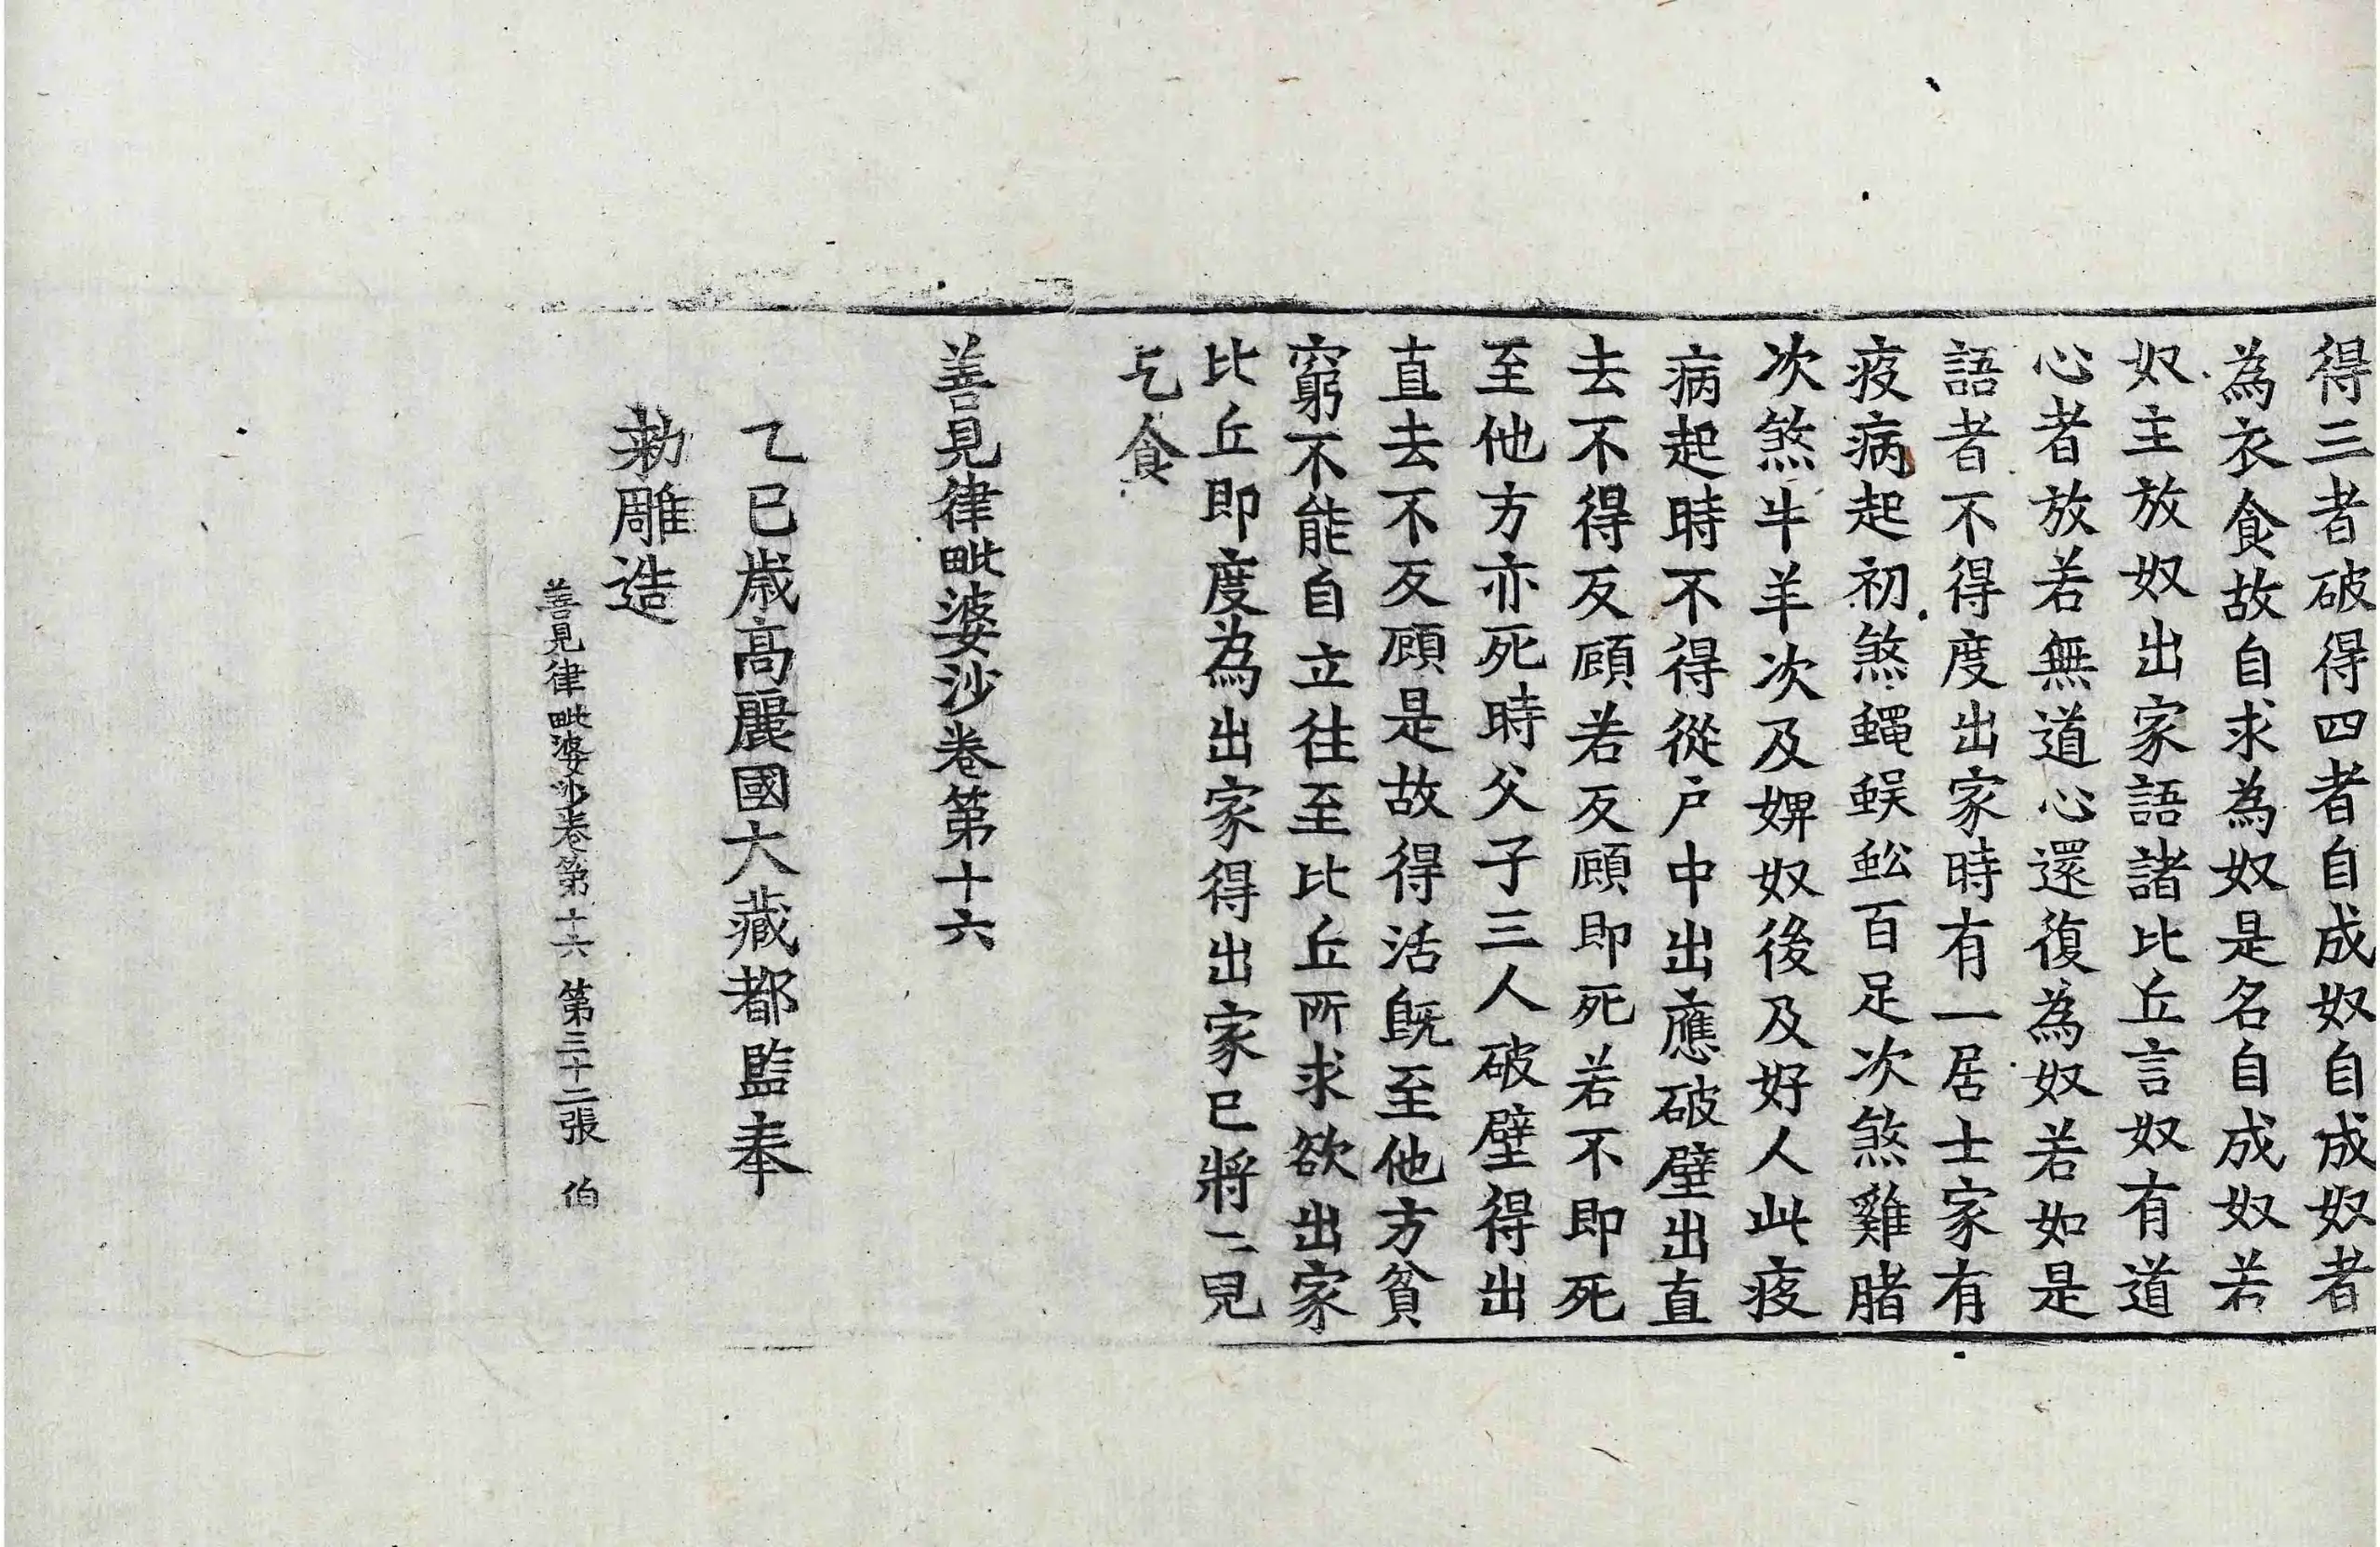 得三者破得四者自成奴自成奴者
為衣食故自求為奴是名自成奴若
奴主放奴出家語諸比丘言奴有道
心者放若無道心還復為奴若如是
語者不得度出家時有一居士家有
疫病起初煞蠅蜈蚣百足次煞雞睹
次煞牛羊次及婢奴後及好人此疫
病起時不得從户中出應破壁出直
去不得反顧若反顧即死若不即死
至他方亦死時父子三人破壁得出
直去不反顧是故得活旣至他方貧
窮不能自立往至比丘所求欲出家
比丘即度為出家得出家已將二兒
乞食
善見律毗婆沙卷第十六
乙巳歳高麗國大藏都監奉
勅雕造
善見律毗婆沙卷第十六 第三十二張 伯